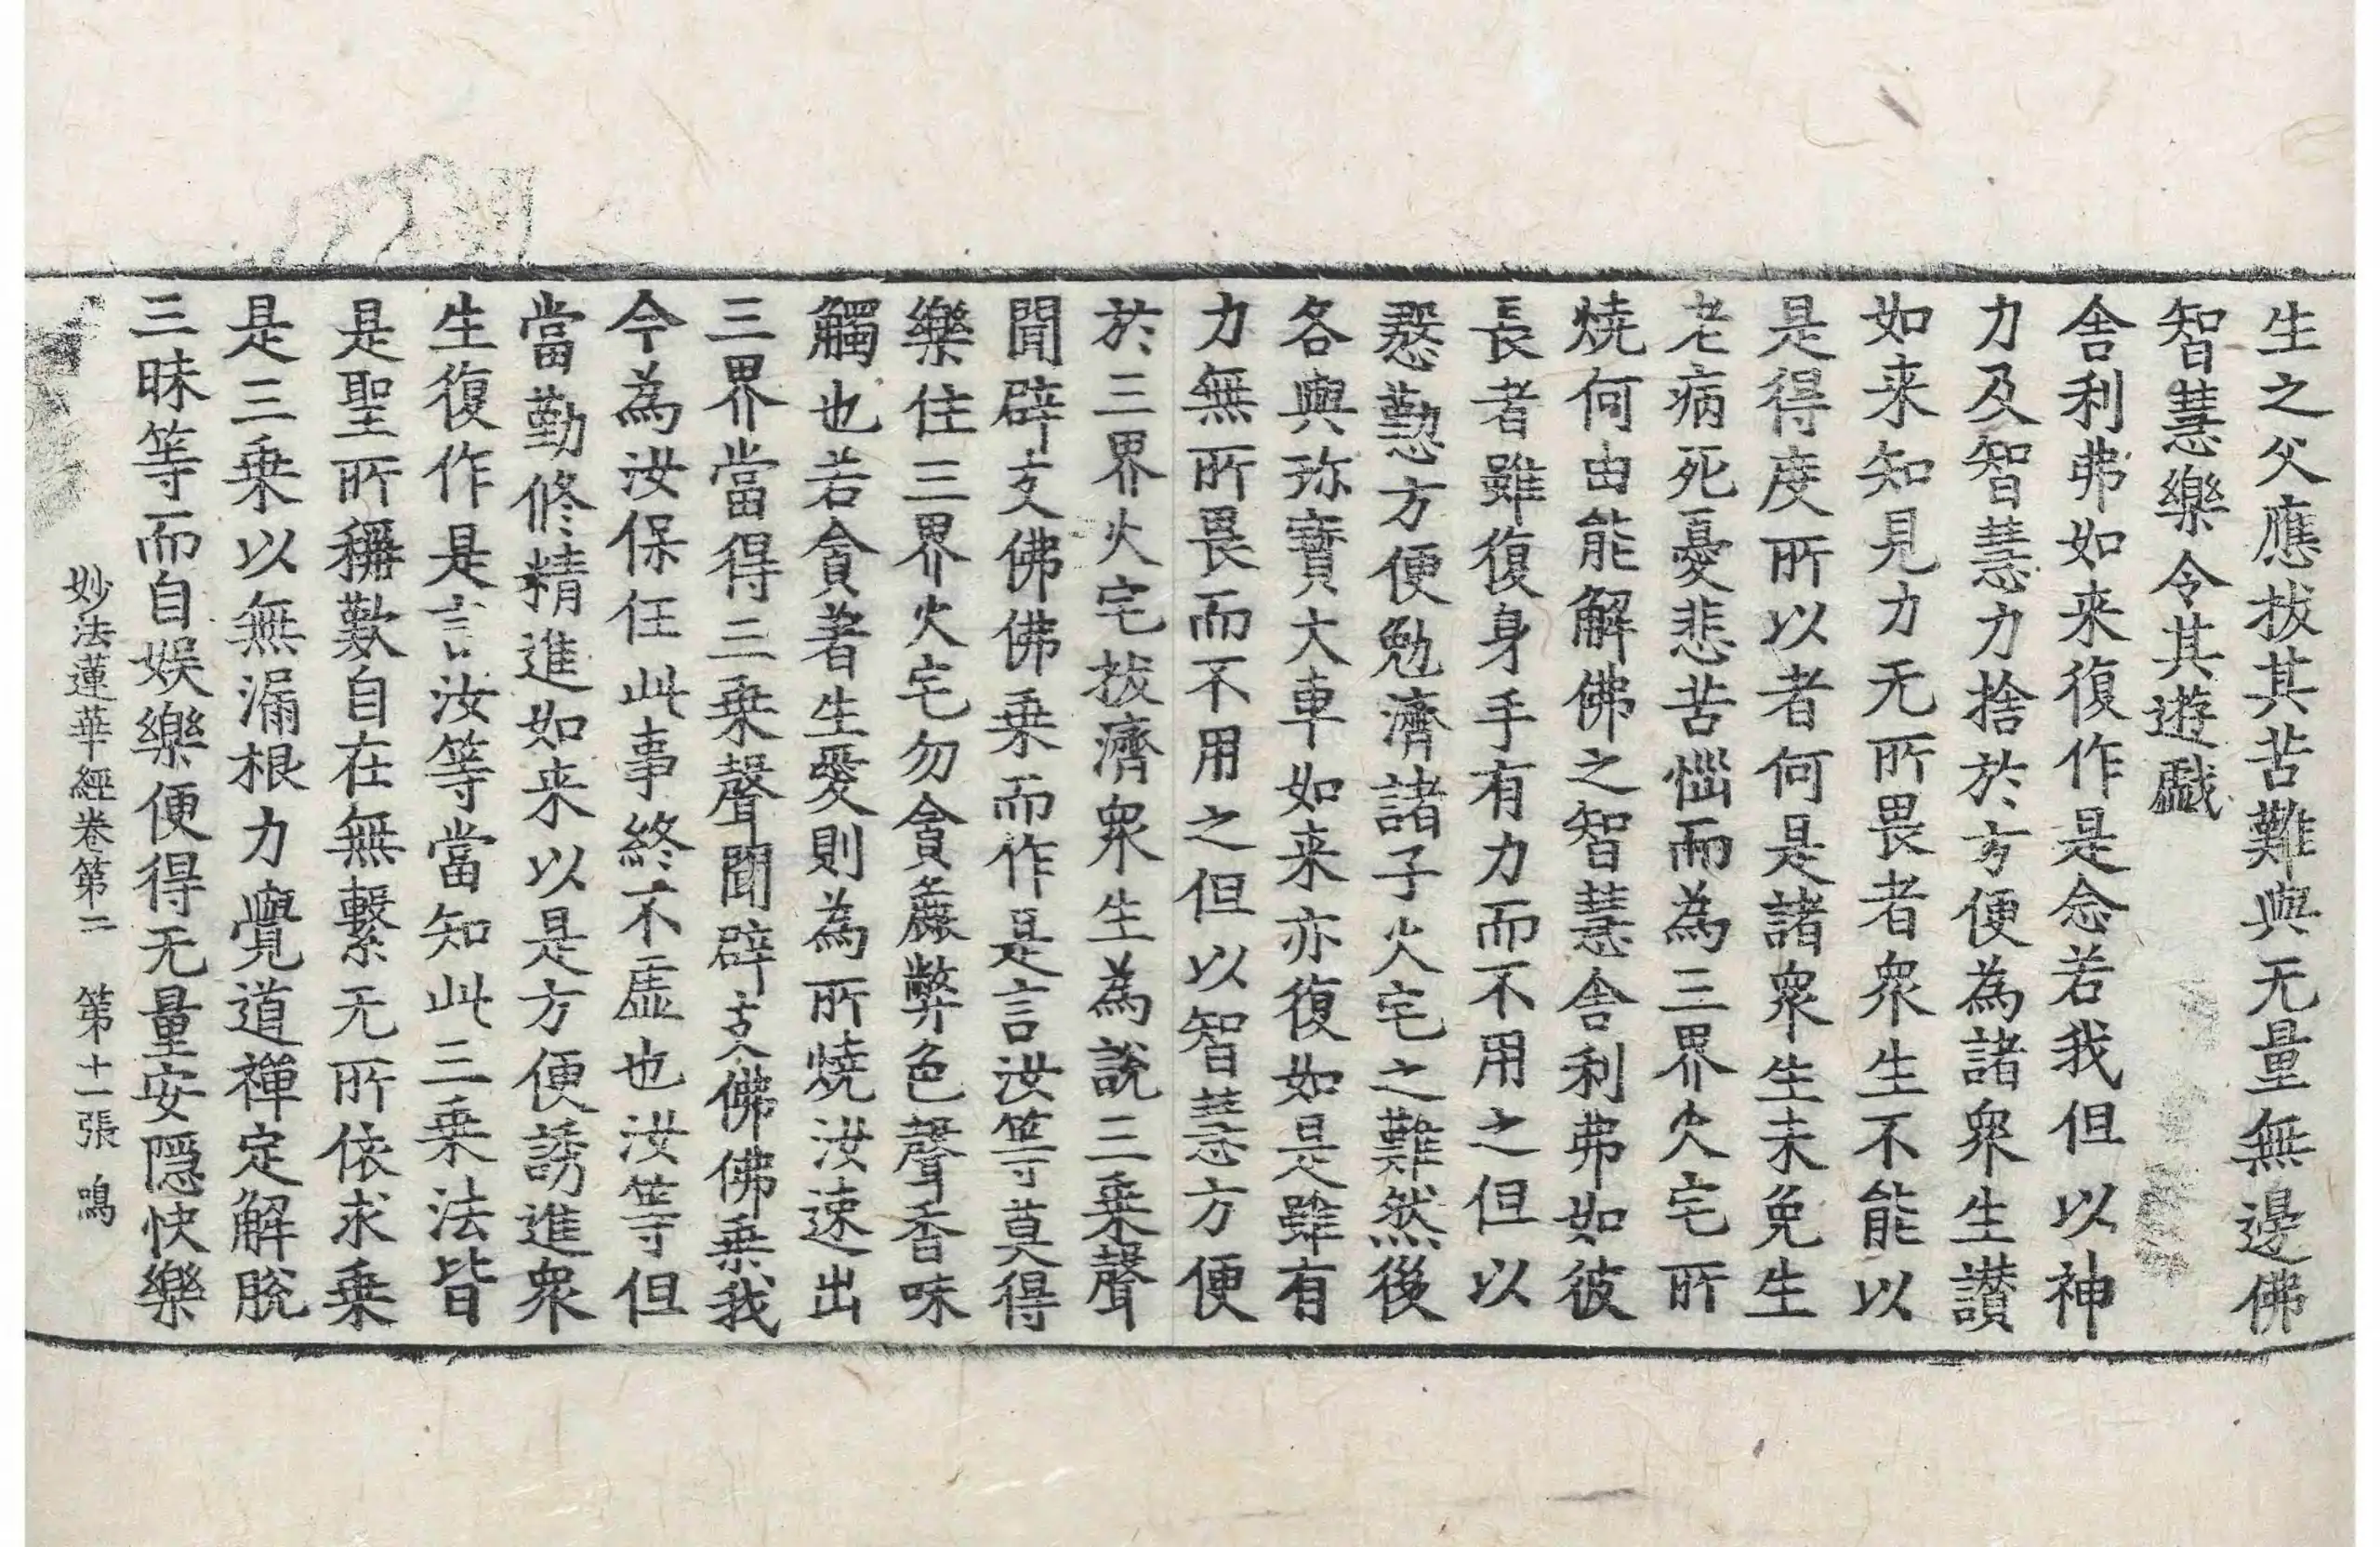 生之父應拔其苦難與无量無邊佛
智慧樂令其遊戲
舍利弗如来復作是念若我但以神
力及智慧力捨於方便為諸衆生讃
如来知見力无所畏者衆生不能以
是得度所以者何是諸衆生未免生
老病死憂悲苦惱而為三界火宅所
燒何由能解佛之智慧舍利弗如彼
長者雖復身手有力而不用之但以
慇懃方便勉濟諸子火宅之難然後
各與珎寶大車如来亦復如是雖有
力無所畏而不用之但以智慧方便
於三界火宅拔濟衆生為說三乗聲
聞辟支佛佛乗而作是言汝等莫得
樂住三界火宅勿貪麁弊色聲香味
觸也若貪著生愛則為所燒汝速出
三界當得三乗聲聞辟支佛佛乗我
今為汝保任此事終不虛也汝等但
當勤修精進如来以是方便誘進衆
生復作是言汝等當知此三乗法皆
是聖所稱歎自在無繫无所依求乗
是三乗以無漏根力覺道禪定解脫
三昧等而自娛樂便得无量安隱快樂
妙法蓮華經卷第二 第十一張 鳴